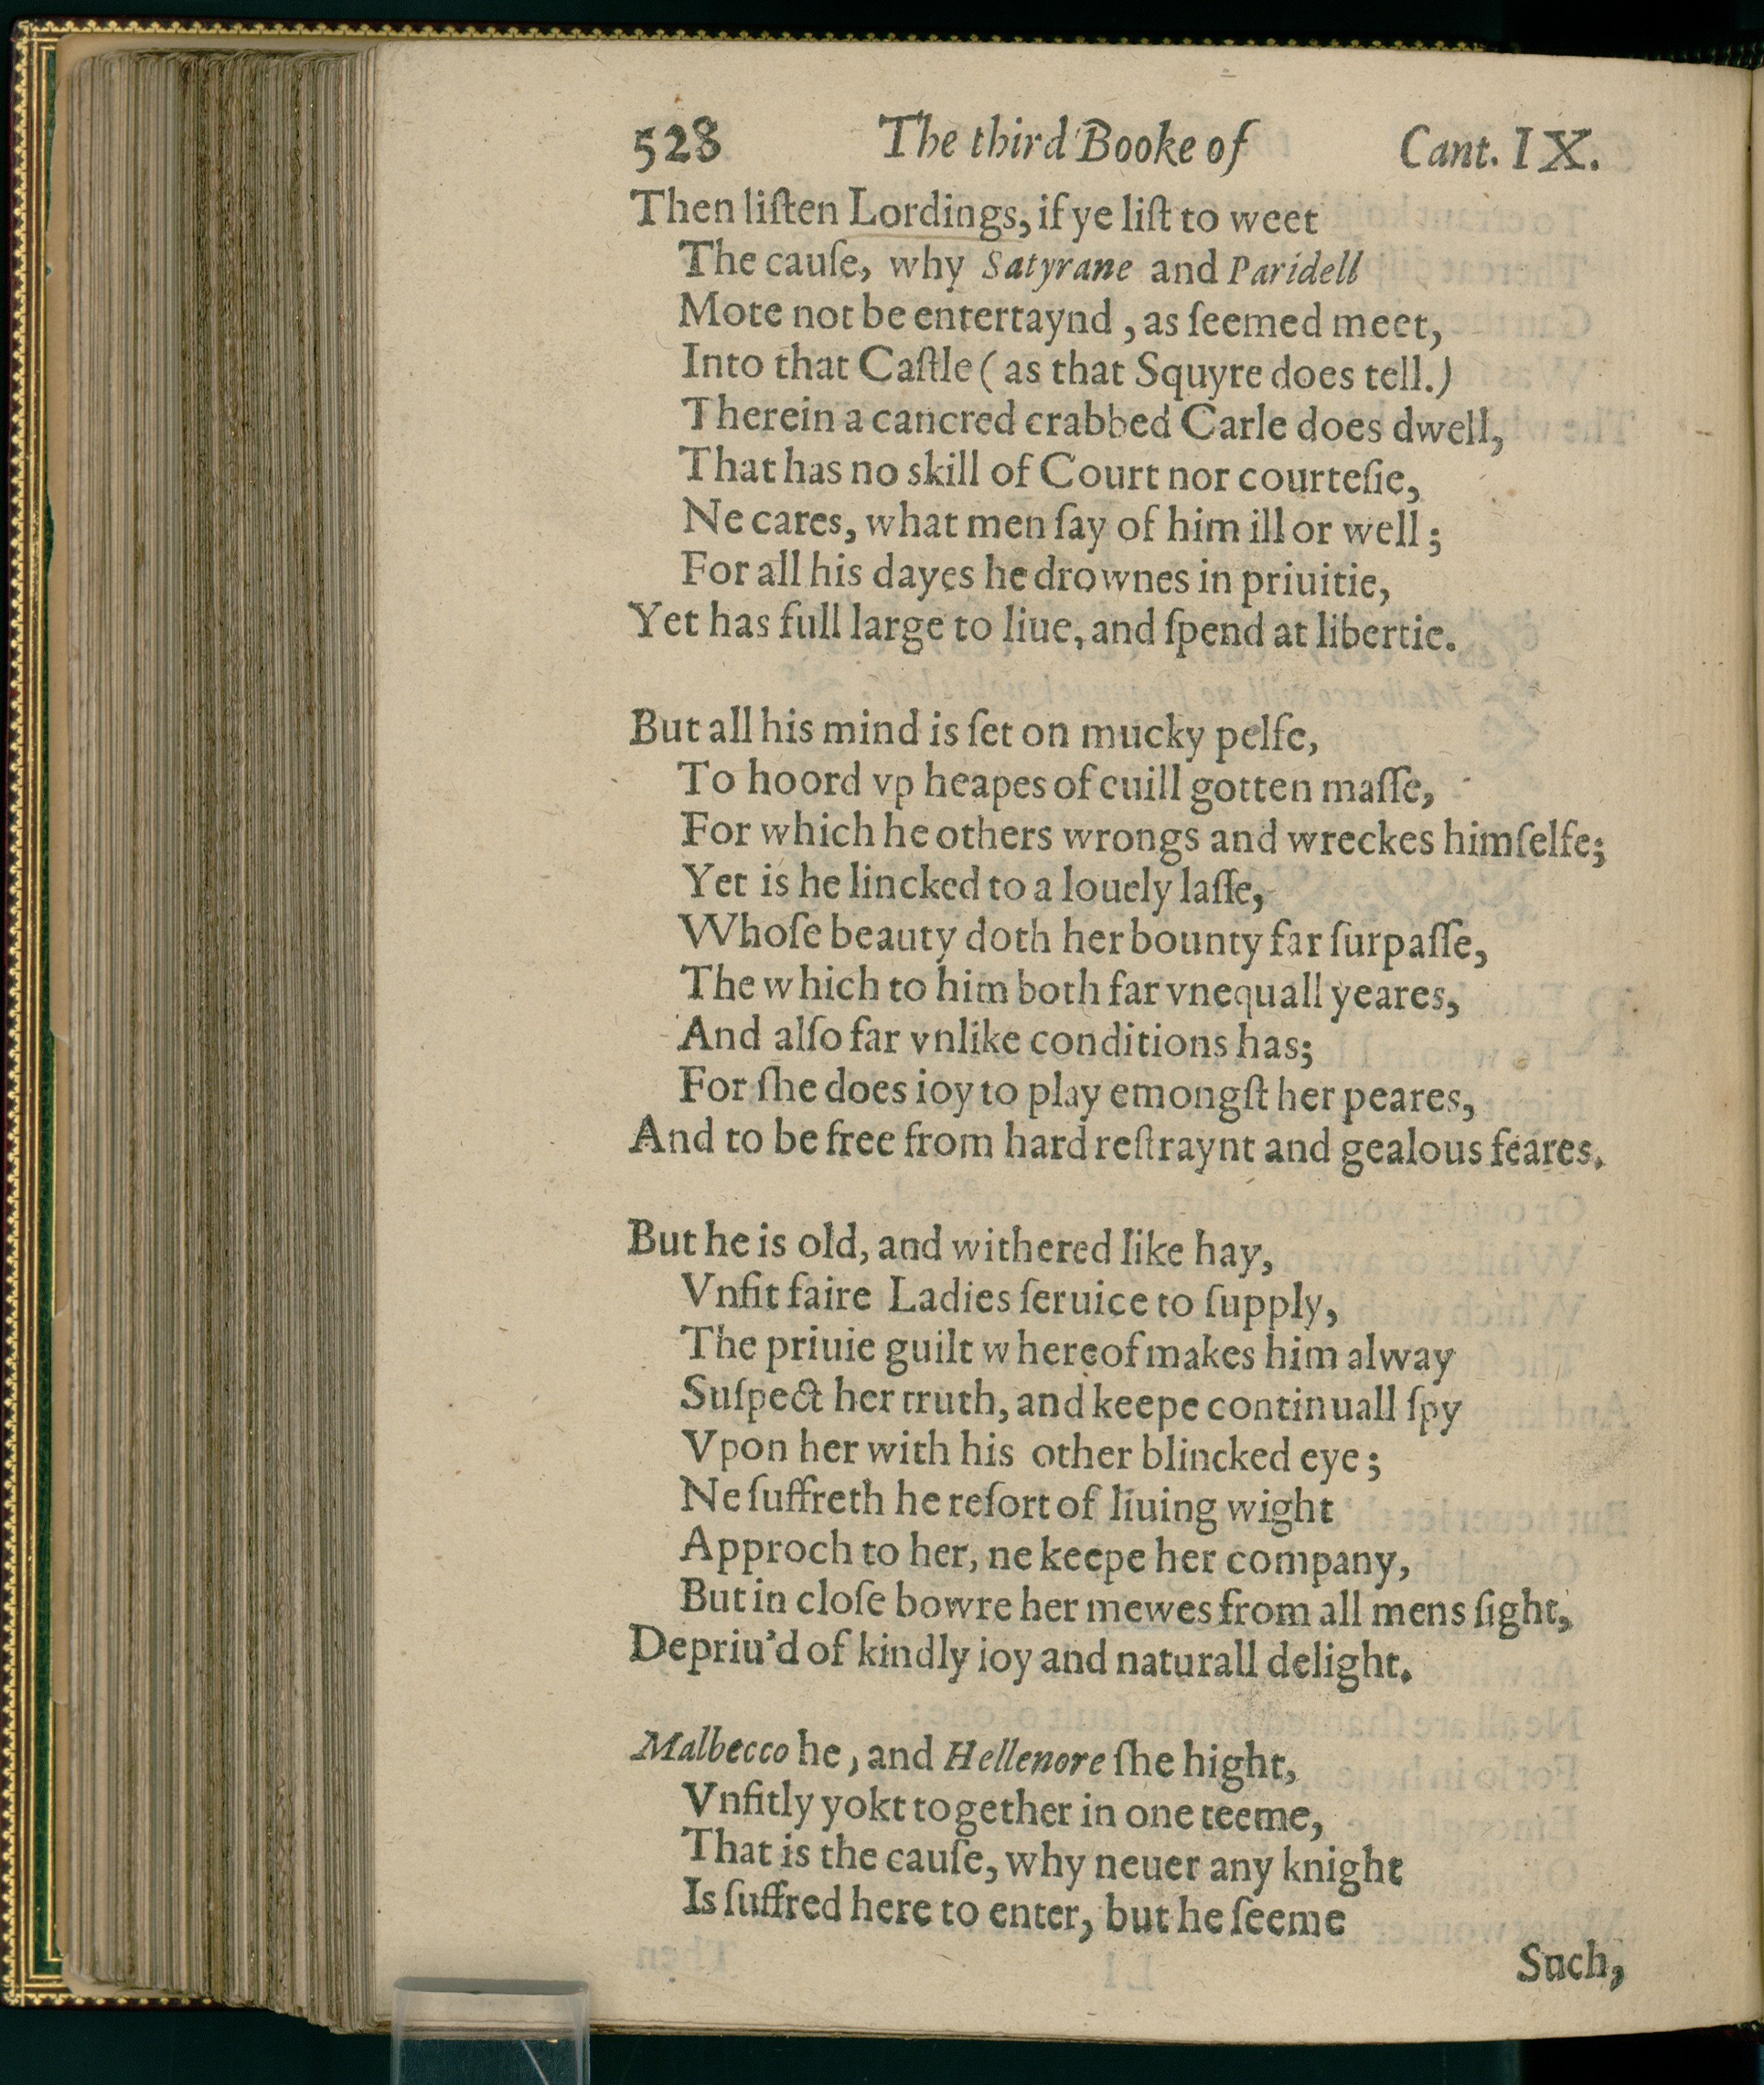 528 The third Booke of Cant. IX.
Then liſten Lordings, if ye liſt to weet
The cauſe, why Satyrane and Paridell
Mote not be entertaynd , as ſeemed meet,
Into that Caſtle ( as that Squyre does tell.)
Therein a cancred crabbed Carle does dwell,
That has no skill of Court nor courteſie,
Ne cares, what men ſay of him ill or well ;
For all his dayes he drownes in priuitie,
Yet has full large to liue, and ſpend at libertie.
But all his mind is ſet on mucky pelfe,
To hoord vp heapes of euill gotten maſſe,
For which he others wrongs and wreckes himſelfe;
Yet is he lincked to a louely laſſe,
Whoſe beauty doth her bounty far ſurpaſſe,
The which to him both far vnequall yeares,
And alſo far vnlike conditions has;
For ſhe does ioy to play emongſt her peares,
And to be free from hard reſtraynt and gealous feares.
But he is old, and withered like hay,
Vnfit faire Ladies ſeruice to ſupply,
The priuie guilt whereof makes him alway
Suſpect her truth, and keepe continuall ſpy
Vpon her with his other blincked eye ;
Ne ſuffreth he reſort of liuing wight
Approch to her, ne keepe her company,
But in cloſe bowre her mewes from all mens ſight,
Depriu'd of kindly ioy and naturall delight.
Malbecco he , and Hellenore ſhe hight,
Vnfitly yokt together in one teeme,
That is the cauſe, why neuer any knight
Is ſuffred here to enter, but he ſeeme
Such,